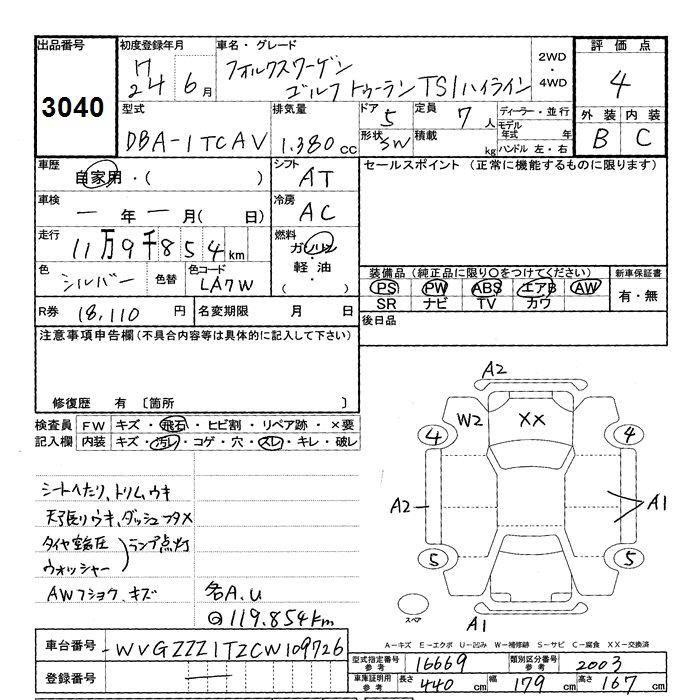 出品番号
3040
初度登録年月
H
24年 6月
車名・グレード
フォルクスワーゲン
ゴルフ トゥーラン TSIハイライン
2WD
・
4WD
評価点
4
外装 内装
B C
型式
DBA-1TCAV
排気量
1.380cc
ドア 5
形状 SW
定員 7人
積載 kg
ディーラー・並行
モデル年式 年
ハンドル 左・右
車歴
自家用・( )
シフト
AT
車検
ー年ー月( 日)
冷房
AC
走行
11万9千854km
燃料
ガソリン
・
軽油
・
( )
色
シルバー
色替
色コード
LA7W
R券 18,110円
名変期限 月 日
セールスポイント (正常に機能するものに限ります)
装備品(純正品に限り〇をつけてください)
PS PW ABS エアB AW
SR ナビ TV カワ
新車保証書
有・無
後日品
注意事項申告欄(不具合内容等は具体的に記入して下さい)
修復歴 有 〔箇所 〕
検査員
記入欄
FW キズ・飛石・ヒビ割・リペア跡・×要
内装 キズ・汚レ・コゲ・穴・スレ・キレ・破レ
シートへたり、トリムウキ
天張りウキ、ダッシュフタメ
タイヤ空気圧
ウォッシャー
ランプ点灯
AWフショク、キズ
各A.U
119.854km
A2
W2
XX
4
4
A2
A1
5
5
スペア
A1
A-キズ E-エクボ U-凹み W-補修跡 S-サビ C-腐食 XX-交換済
車台番号 -WVGZZZ1TZCW109726
登録番号 ー
型式指定番号 参考 16669
類別区分番号 参考 2003
車庫証明用 参考
長さ 440cm 幅 179cm 高さ 167cm